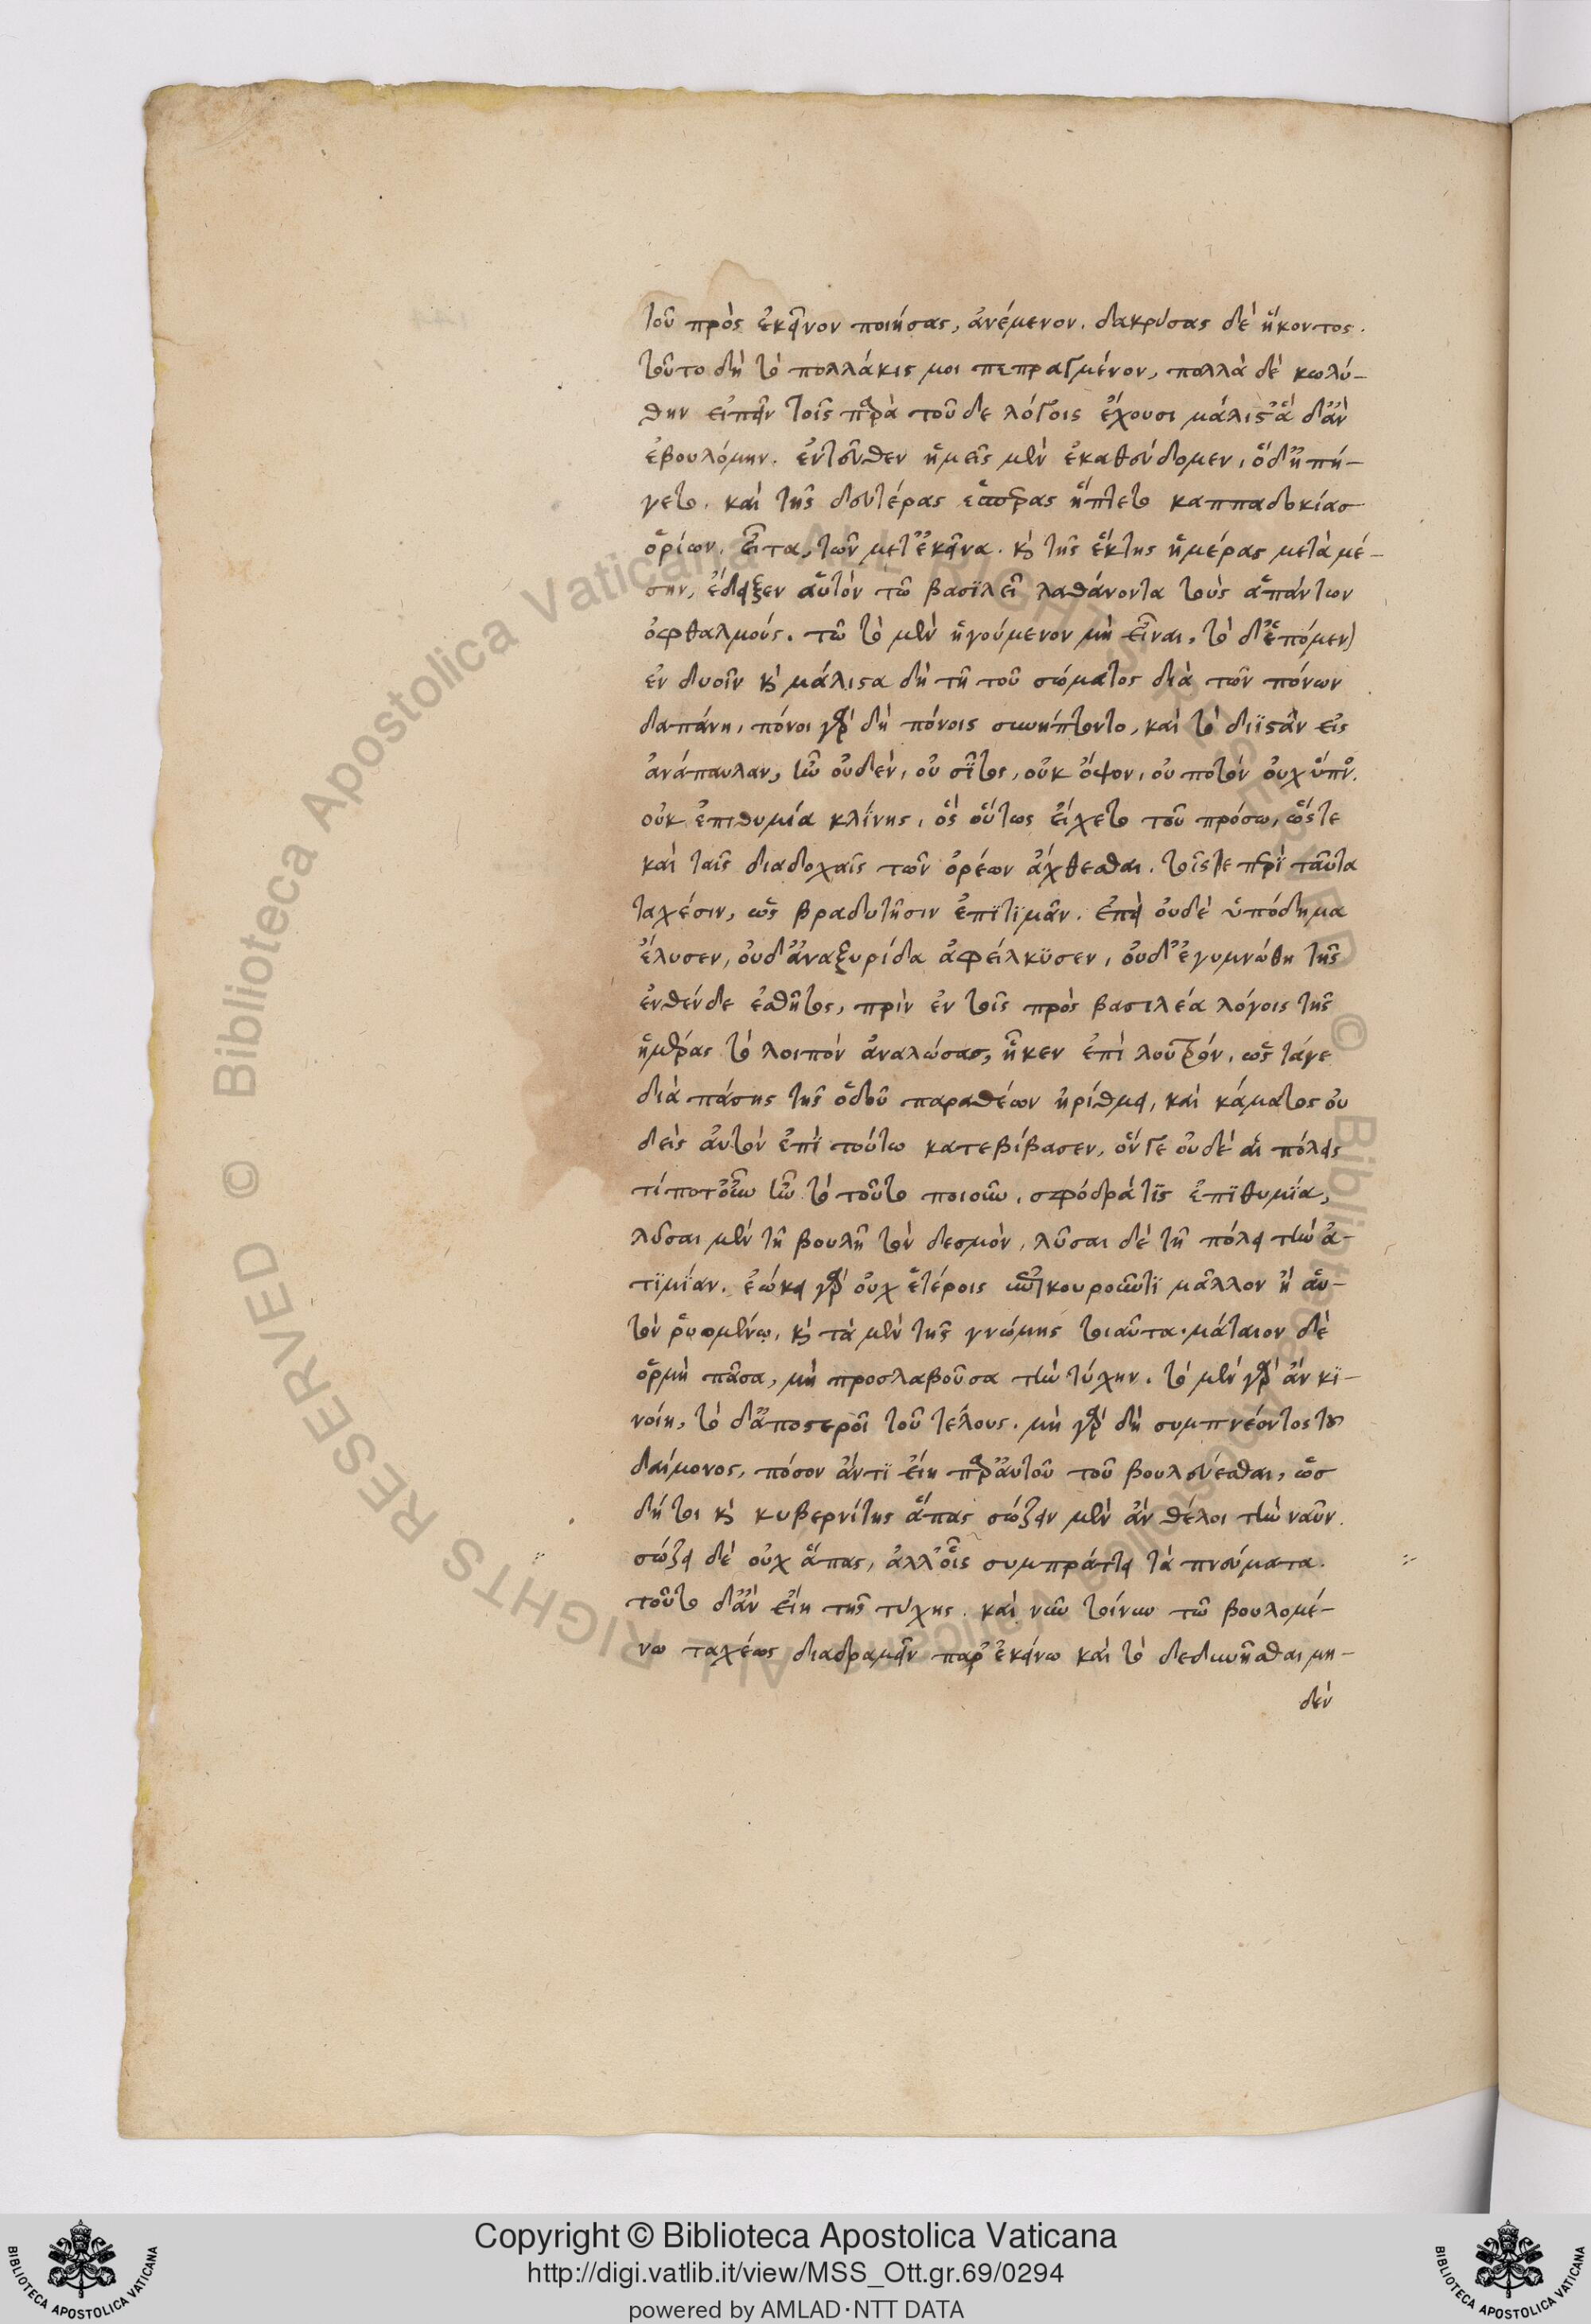 τοῦ πρὸς ἐκεῖνον ποιήσας, ἀνέμενον. δακρύσας δὲ ἥκοντος.
τοῦτο δὴ τὸ πολλάκις μοι πεπραγμένον, πολλὰ δὲ κωλύ-
θην εἰπεῖν τοῖς παρὰ τοῦδε λόγοις ἔχουσι μάλιστα ἃ δ' ἂν
ἐβουλόμην. ἐντεῦθεν ἡμεῖς μὲν ἐκαθεύδομεν, ὁ δ' ἠπή-
γετο. καὶ τῆς δευτέρας ἑσπέρας ἥπτετο καππαδοκίας
ὁρίων. εἶτα, τῶν μετ' ἐκεῖνα. κὶ τῆς ἕκτης ἡμέρας μετὰ μέ-
σην, ἔδειξεν αὑτὸν τῷ βασιλεῖ λαθάνοντα τοὺς ἁπάντων
ὀφθαλμούς. τῷ τὸ μὲν ἡγούμενον μὴ εἶναι, τὸ δ' ἑπόμενον
ἐν δυοῖν κὶ μάλιστα δὴ τῆ τοῦ σώματος διὰ τῶν πόνων
δαπάνη, πόνοι γὰρ δὴ πόνοις συνήπτοντο, καὶ τὸ διϊστὰν εἰς
ἀνάπαυλαν, ἦν οὐδὲν, οὐ σῖτος, οὐκ ὄψον, οὐ ποτόν οὐχ ὕπνος.
οὐκ ἐπιθυμία κλίνης, ὃς οὕτως εἴχετο τοῦ πρόσω, ὥστε
καὶ ταῖς διαδοχαῖς τῶν ὀρέων ἄχθεσθαι. τοῖς τε περὶ ταῦτα
ταχέσιν, ὡς βραδυτῆσιν ἐπϊτϊμᾶν. ἐπεὶ οὐδὲ ὑπόδημα
ἔλυσεν, οὐδ' ἀναξυρίδα ἀφείλκϋσεν, οὐδ' ἐγυμνώθη τῆς
ἐνθένδε ἐσθῆτος, πρὶν ἐν τοῖς πρὸς βασιλέα λόγοις τῆς
ἡμέρας τὸ λοιπὸν ἀναλώσας, ἧκεν ἐπὶ λουτρόν, ὡς τάγε
διὰ πάσης τῆς ὁδοῦ παραθέων ἠρίθμει, καὶ κάματος οὐ
δεὶς αὐτὸν ἐπὶ τούτω κατεβίβασεν, ὅν γε οὐδὲ αἱ πόλεις
τί ποτ' οὖν ἦν τὸ τοῦτο ποιοῦν, σφόδρά τϊς ἐπϊθυμϊα,
λῦσαι μὲν τῆ βουλῆ τὸν δεσμὸν, λῦσαι δὲ τῆ πόλει τὴν ἀ-
τϊμϊαν. ἐώκει γὰρ οὐχ ἑτέροις συνεπικουροῦντϊ μᾶλλον ἢ αὑ-
τὸν ῥυομένῳ, κὶ τὰ μὲν τῆς γνώμης τοιαῦτα. μάταιον δὲ
ὁρμὴ πᾶσα, μὴ προσλαβοῦσα τὴν τύχην. τὸ μὲν γὰρ ἂν κϊ-
νοίη, τὸ δ' ἀποστεροῖ τοῦ τέλους. μὴ γὰρ δὴ συμπνέοντος τοῦ
δαίμονος, πόσον ἄν τϊ εἴη παρ' αὐτοῦ τοῦ βουλεύεσθαι, ὡς
δή τοι κὶ κυβερνίτης ἅπας σώζειν μὲν ἂν θέλοι τὴν ναῦν.
σώζει δὲ οὐχ ἅπας, ἀλλ' οἷς συμπράττει τὰ πνεύματα.
τοῦτο δ' ἂν εἴη τῆς τύχης. καὶ νῦν τοίνυν τῷ βουλομέ-
νω ταχέως διαδραμεῖν παρ' ἐκείνω καὶ τὸ δεδυνῆσθαι μη-
δὲν
Copyright © Biblioteca Apostolica Vaticana
http://digi.vatlib.it/view/MSS_Ott.gr.69/0294
powered by AMLAD·NTT DATA